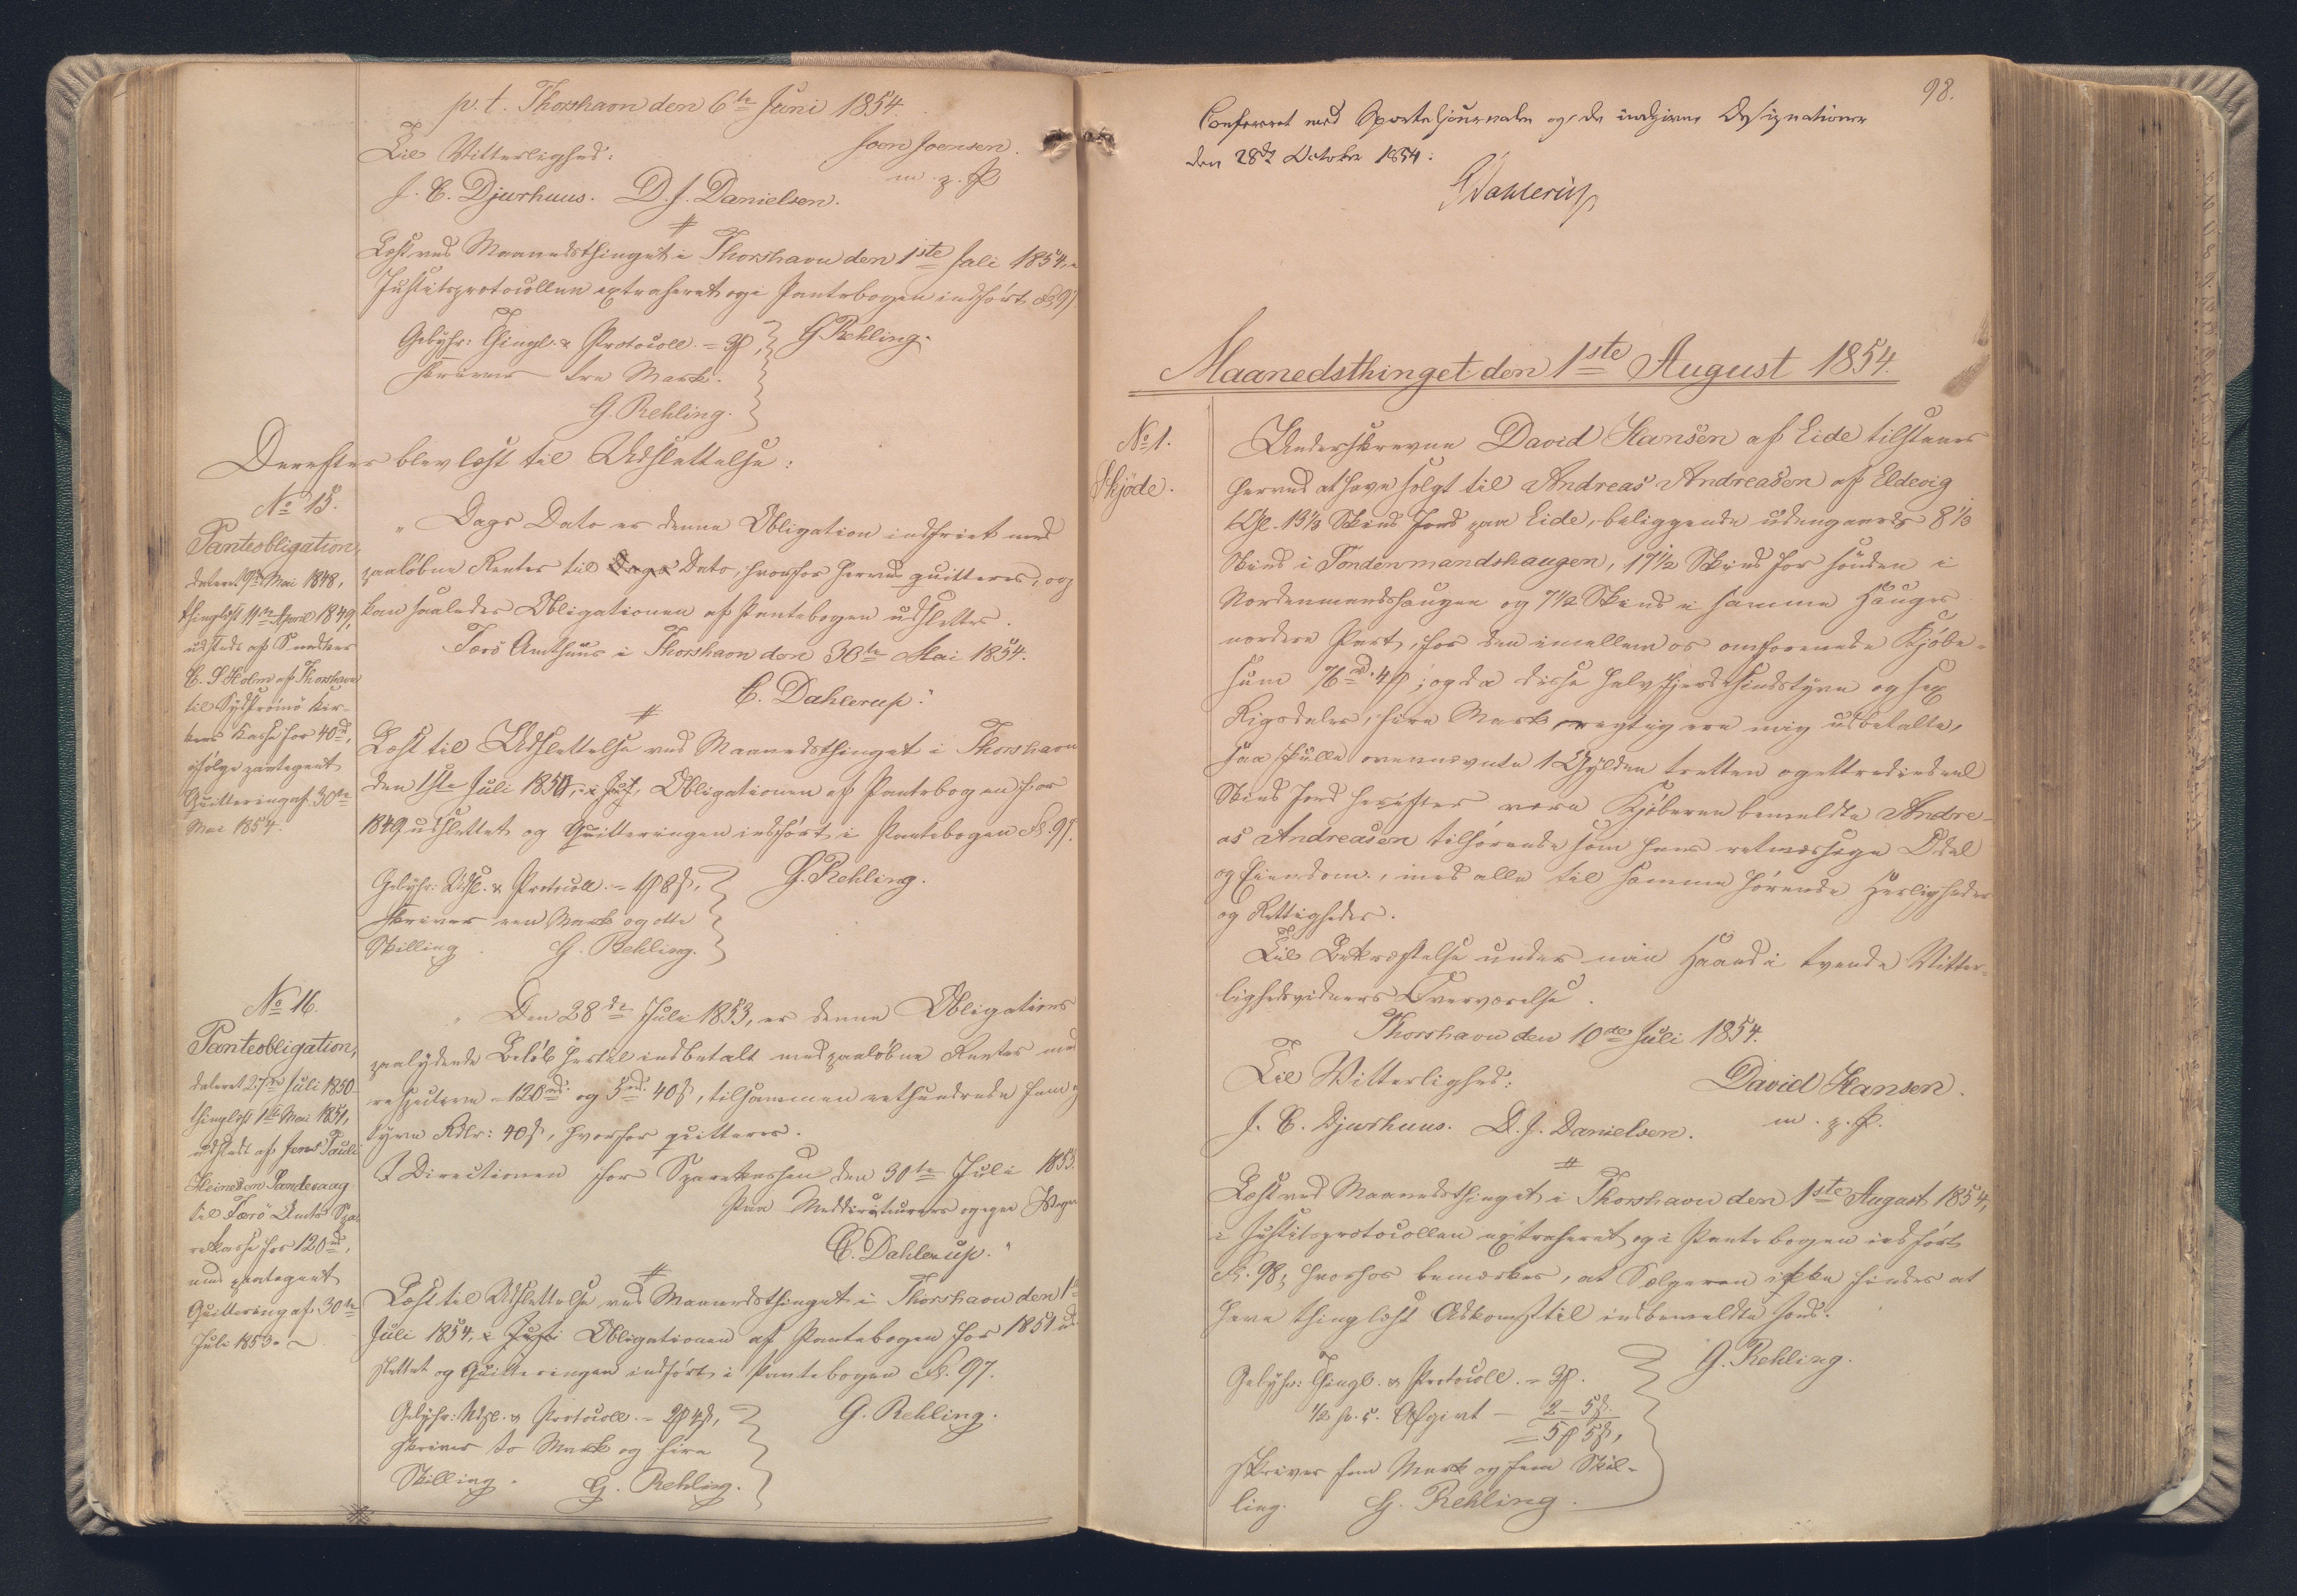 p. t. Thorshavn den 6te Juni 1854.
Joen Joensen.
Til Vitterlighed:
m. p. P
J. C. Djurhuus. D. J. Danielsen.
#
Læst ved Maanedsthinget i Thorshavn den 1ste Juli 1854, i
Justitsprotocollen extraheret og i Pantebogen indført Fol. 97
Gebyhr: Thingl. & Protocoll. = 3
G Rehling.
skriver tre Mark.
G. Rehling.
Derefter blev læst til Udslettelse:
No 15.
Panteobligation,
dateret 9de Mai 1848,
thinglæst 11te April 1849,
udstedt af Snedker
C. S. Holm af Thorshavn
til Sydstrømø Kir-
kers Kasse for 40 rd,
ifølge paategnet
Quittering af 30te
Mai 1854.
" Dags Dato er denne Obligation indfriet med
paaløbne Renter til Dags Dato, hvorfor herved quitteres, og
kan saaledes Obligationen af Pantebogen udslettes.
Færø Amthuus i Thorshavn den 30te Mai 1854.
C. Dahlerup."
#
Læst til Udslettelse ved Maanedsthinget i Thorshavn
den 1ste Juli 1854, i Just, Obligationen af Pantebogen for
1849 udslettet og Quitteringen indført i Pantebogen Fol. 97.
Gebyhr: Udsl. & Protocoll. = 1 8 ,
G. Rehling.
skriver een Mark og otte
Skilling. G. Rehling.
No 16.
Panteobligation,
dateret 27de Juli 1850
thinglæst 1ste Mai 1851,
udstedt af Jens Pauli
Heinesen Sandevaag
til Færö Amts Spa-
rekasse for 120 rd,
med paategnet
Quittering af 30te
Juli 1853.
" Den 28de Juli 1853, er denne Obligations
paalydende Beløb hertil indbetalt med paaløbne Renter med
respective 120 rd og 5 rd 40 ß, tilsammen eethundrede fem og
tyve Rdlr: 40 ß, hvorfor quitteres.
I Directionen for Sparekassen den 30te Juli 1853.
Paa Meddirecteurers og egne Vegne
C. Dahlerup."
#
Læst til Udslettelse ved Maanedsthinget i Thorshavn den 1ste
Juli 1854, i Just Obligationen af Pantebogen for 1851 ud-
slettet og Quitteringen indført i Pantebogen Fol. 97.
Gebyhr: Udsl. & Protocoll. = 2 4 ß,
G. Rehling.
skriver to Mark og fire
Skilling. G. Rehling.
98.
Confereret med Sporteljournalen og de indgivne Designationer
den 28de October 1854:
Dahlerup
Maanedsthinget den 1ste August 1854.
No 1.
Skjöde.
Underskrevne David Hansen af Eide tilstaaer
herved at have solgt til Andreas Andreasen af Eldevig
1 Gl. 13 1/3 Skind Jord paa Eide, beliggende udengaards 8 1/3
Skind i Søndenmandshaugen, 17 1/2 Skind for sönden i
Nordenmandshaugen og 7 1/2 Skind i samme Hauges
nordere Part, for den imellem os omforenede Kjöbe-
sum 76 rd 4 ; og da disse halvfjerdsindstyve og sex
Rigsdaler, fire Mark rigtig ere mig udbetalte,
saa skulle ovennævnte 1 Gylden tretten og ettrediedeel
Skind Jord herefter være Kjöberen bemeldte Andre-
as Andreasen tilhørende som hans retmæssige Odel
og Eiendom, med alle til samme hørende Herligheder
og Rettigheder.
Til Bekræftelse under min Haand i tvende Vitter-
lighedsvidners Overværelse.
Thorshavn den 10de Juli 1854.
Til Vitterlighed:
David Hansen.
J. C. Djurhuus. D. J. Danielsen.
m. p. P.
#
Læst ved Maanedsthinget i Thorshavn den 1ste August 1854,
i Justitsprotocollen extraheret og i Pantebogen indført
Fol. 98, hvorhos bemærkes, at Sælgeren ikke findes at
have thinglæst Adkomst til indbemeldte Jord.
G. Rehling.
Gebyhr: Thingl. & Protocoll. = 3 .
1/2 pr. c. Afgivt — 2 - 5 ß.
= 5 5 ß,
skriver fem Mark og fem Skil-
ling. G. Rehling.